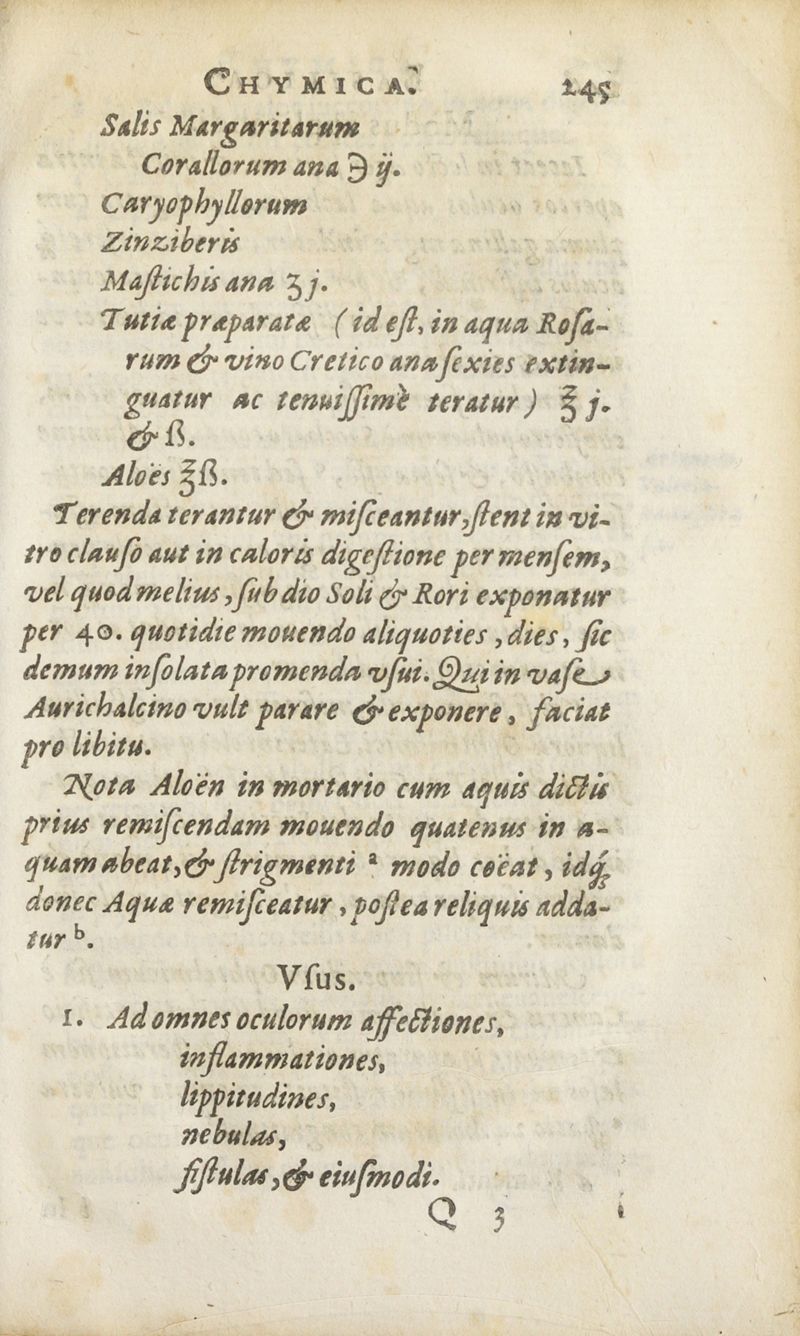 CHYMICA. 245
Salis Margaritarum
Corallorum ana ℈ ij.
Caryophyllorum
Zinziberis
Maſtichis ana ʒ j.
Tutiæ præparatæ (id eſt, in aqua Roſa-
rum & vino Cretico ana ſexies extin-
guatur ac tenuiſſimè teratur) ℥ j.
& ß.
Aloës ℥ß.
Terenda terantur & miſceantur, ſtent in vi-
tro clauſo aut in caloris digeſtione per menſem,
vel quod melius, ſub dio Soli & Rori exponatur
per 40. quotidie mouendo aliquoties, dies, ſic
demum inſolata promenda vſui. Qui in vaſe
Aurichalcino vult parare & exponere, faciat
pro libitu.
Nota Aloën in mortario cum aquis dictis
prius remiſcendam mouendo quatenus in a-
quam abeat, & ſtrigmenti ᵃ modo coëat, idq́ꝫ
donec Aquæ remiſceatur, poſtea reliquis adda-
tur ᵇ.
Vſus.
1. Ad omnes oculorum affectiones,
inflammationes,
lippitudines,
nebulas,
fiſtulas, & eiuſmodi.
Q 3